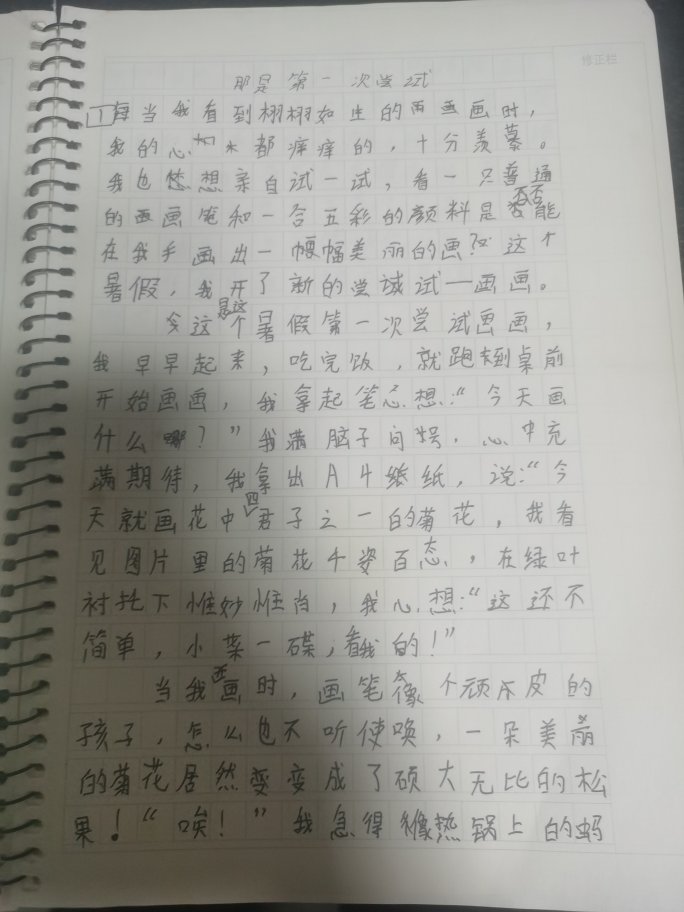 修正栏
那是第一次尝试
1 每当我看到栩栩如生的画画时，
我的心如水都痒痒的，十分羡慕。
我也想亲自试一试，看一只普通
的画画笔和一合五彩的颜料是否能
在我手画出一幅幅美丽的画？这个
暑假，我开了新的尝试——画画。
今这是这个暑假第一次尝试画画，
我早早起来，吃完饭，就跑到桌前
开始画画，我拿起笔心想：“今天画
什么哪？”我满脑子问号，心中充
满期待，我拿出A4纸，说：“今
天就画花中四君子之一的菊花，我看
见图片里的菊花千姿百态，在绿叶
衬托下惟妙惟肖，我心想：“这还不
简单，小菜一碟，看我的！”
当我画时，画笔像个顽皮的
孩子，怎么也不听使唤，一朵美丽
的菊花居然变成了硕大无比的松
果！“唉！”我急得像热锅上的蚂